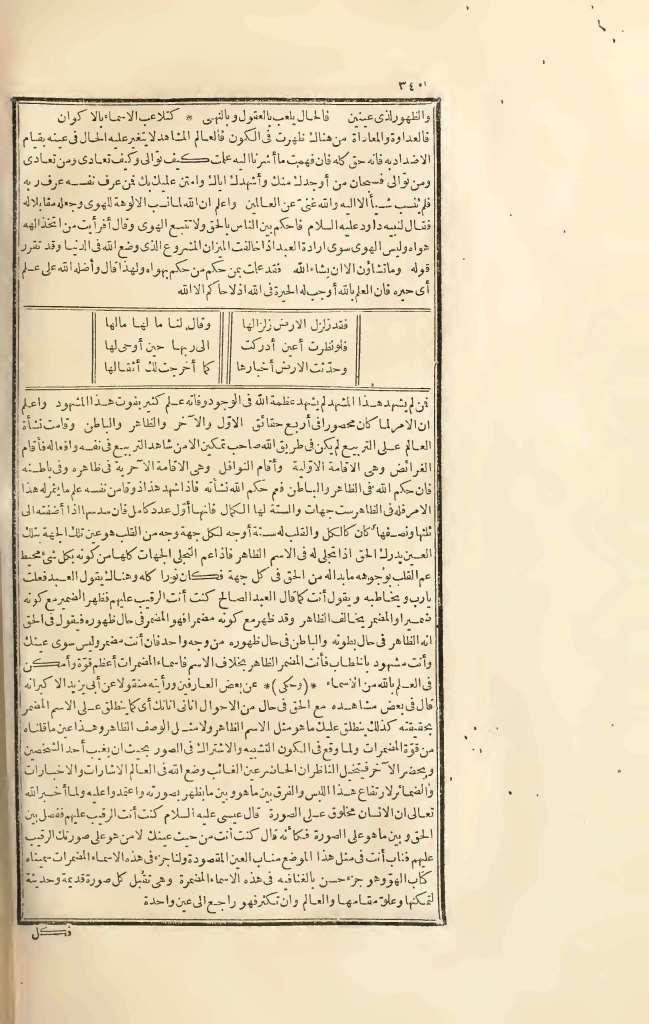 ٣٤٥
والظهور لذى عينين فالحال يلعب بالعقول وبالنهى * كتلاعب الاسماء بالاكوان
فالعداوة والمعاداة من هناك ظهرت فى الكون فالعالم المشاهد لا يتغير عليه الحال فى عينه بقيام
الاضداد به فانه حق كله فان فهمت ما أشرنا اليه علمت كيف توالى وكيف تعادى ومن تعادى
ومن توالى فسبحان من أوجدك منك وأشهدك اياك وامتن عليك بك فمن عرف نفسه عرف ربه
فلم ينسب شيأ الا اليه والله غنىّ عن العالمين واعلم ان الله لما نسب الالوهة للهوى وجعله مقابلا له
فقال لنبيه داود عليه السلام فاحكم بين الناس بالحق ولا تتبع الهوى وقال أفرأيت من اتخذ الهه
هواه وليس الهوى سوى ارادة العبد اذا خالفت الميزان المشروع الذى وضع الله فى الدنيا وقد تقرر
قوله وما تشاؤن الا ان يشاء الله فقد علمت بمن حكم من حكم بهواه ولهذا قال وأضله الله على علم
أى حيره فان العلم بالله أوجب له الحيرة فى الله اذ لا حاكم الا الله
فقد زلزل الارض زلزالها وقال لنا ما لها مالها
فلو نظرت أعين أدركت الى ربها حين أوحى لها
وحدّثت الارض أخبارها كما أخرجت لك أثقالها
فمن لم يشهد هذا المشهد لم يشهد عظمة الله فى الوجود وفاته علم كثير بفوت هذا المشهود واعلم
ان الامر لما كان محصورا فى أربع حقائق الاول والآخر والظاهر والباطن وقامت نشأة
العالم على التربيع لم يكن فى طريق الله صاحب تمكين الا من شاهد التربيع فى نفسه وافعاله فأقام
الفرائض وهى الاقامة الاولية وأقام النوافل وهى الاقامة الآخرية فى ظاهره وفى باطنه
فان حكم الله فى الظاهر والباطن فم حكم الله نشأته فاذا شهد هذا ذوقا من نفسه علم ما يثمر له هذا
الامر فله فى الظاهر ست جهات والستة لها الكمال فانها أول عدد كامل فان سدسها اذا أضفته الى
ثلثها ونصفها كان كالكل والقلب له ستة أوجه لكل جهة وجه من القلب هو عين تلك الجهة بتلك
العين يدرك الحق اذا تجلى له فى الاسم الظاهر فاذا عم التجلى الجهات كلها من كونه بكل شئ محيط
عم القلب بوجوهه ما بدا له من الحق فى كل جهة فكان نورا كله وهنالك يقول العبد فعلت
يا رب ويخاطبه ويقول أنت كما قال العبد الصالح كنت أنت الرقيب عليهم فظهر الضمير مع كونه
ضميرا والمضمر يخالف الظاهر وقد ظهر مع كونه مضمرا فهو المضمر فى حال ظهوره فيقول فى الحق
انه الظاهر فى حال بطونه والباطن فى حال ظهوره من وجه واحد فان أنت مضمر وليس سوى عينك
وأنت مشهود بالخطاب فأنت المضمر الظاهر بخلاف الاسم فاسماء المضمرات أعظم قوّة وأمكن
فى العلم بالله من الاسماء *(وحكى)* عن بعض العارفين ورأيته منقولا عن أبى يزيد الاكبر انه
قال فى بعض مشاهده مع الحق فى حال من الاحوال انائى انائك أى كما ينطلق على الاسم المضمر
بحقيقته كذلك ينطلق عليك ما هو مثل الاسم الظاهر ولا مثل الوصف الظاهر وهذا عين ما قلناه
من قوّة المضمرات ولما وقع فى الكون التشبيه والاشتراك فى الصور بحيث ان يغيب أحد الشخصين
ويحضر الآخر فيتخيل الناظر ان الحاضر عين الغائب وضع الله فى العالم الاشارات والاخبارات
والضمائر لارتفاع هذا اللبس والفرق بين ما هو وبين ما يظهر بصورته واعتمدوا عليه ولما أخبر الله
تعالى ان الانسان مخلوق على الصورة قال عيسى عليه السلام كنت أنت الرقيب عليهم ففصل بين
الحق وبين ما هو على الصورة فكأنه قال كنت أنت من حيث عينك لا من هو على صورتك الرقيب
عليهم فناب أنت فى مثل هذا الموضع مناب العين المقصودة ولنا جزء فى هذه الاسماء المضمرات سميناه
كتاب الهو وهو جزء حسن بالغنا فيه فى هذه الاسماء المضمرة وهى تقبل كل صورة قديمة وحديثة
لتمكنها وعلوّ مقامها والعالم وان تكثر فهو راجع الى عين واحدة
فكل